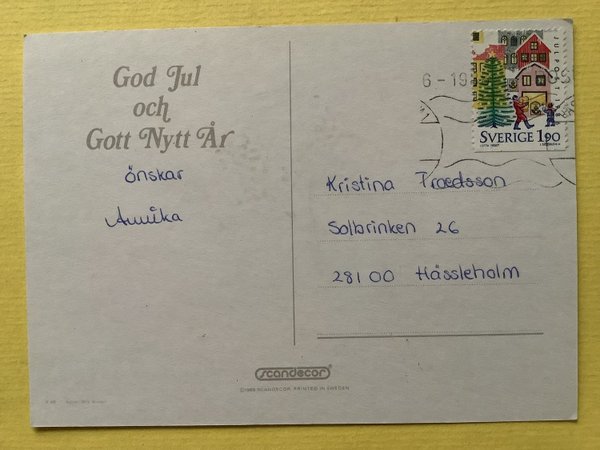 God Jul
och
Gott Nytt År
önskar
Annika
6-19
JULPOST
SVERIGE 1.90
Kristina Troedsson
Solbrinken 26
28100 Hässleholm
scandecor
SCANDECOR. PRINTED IN SWEDEN